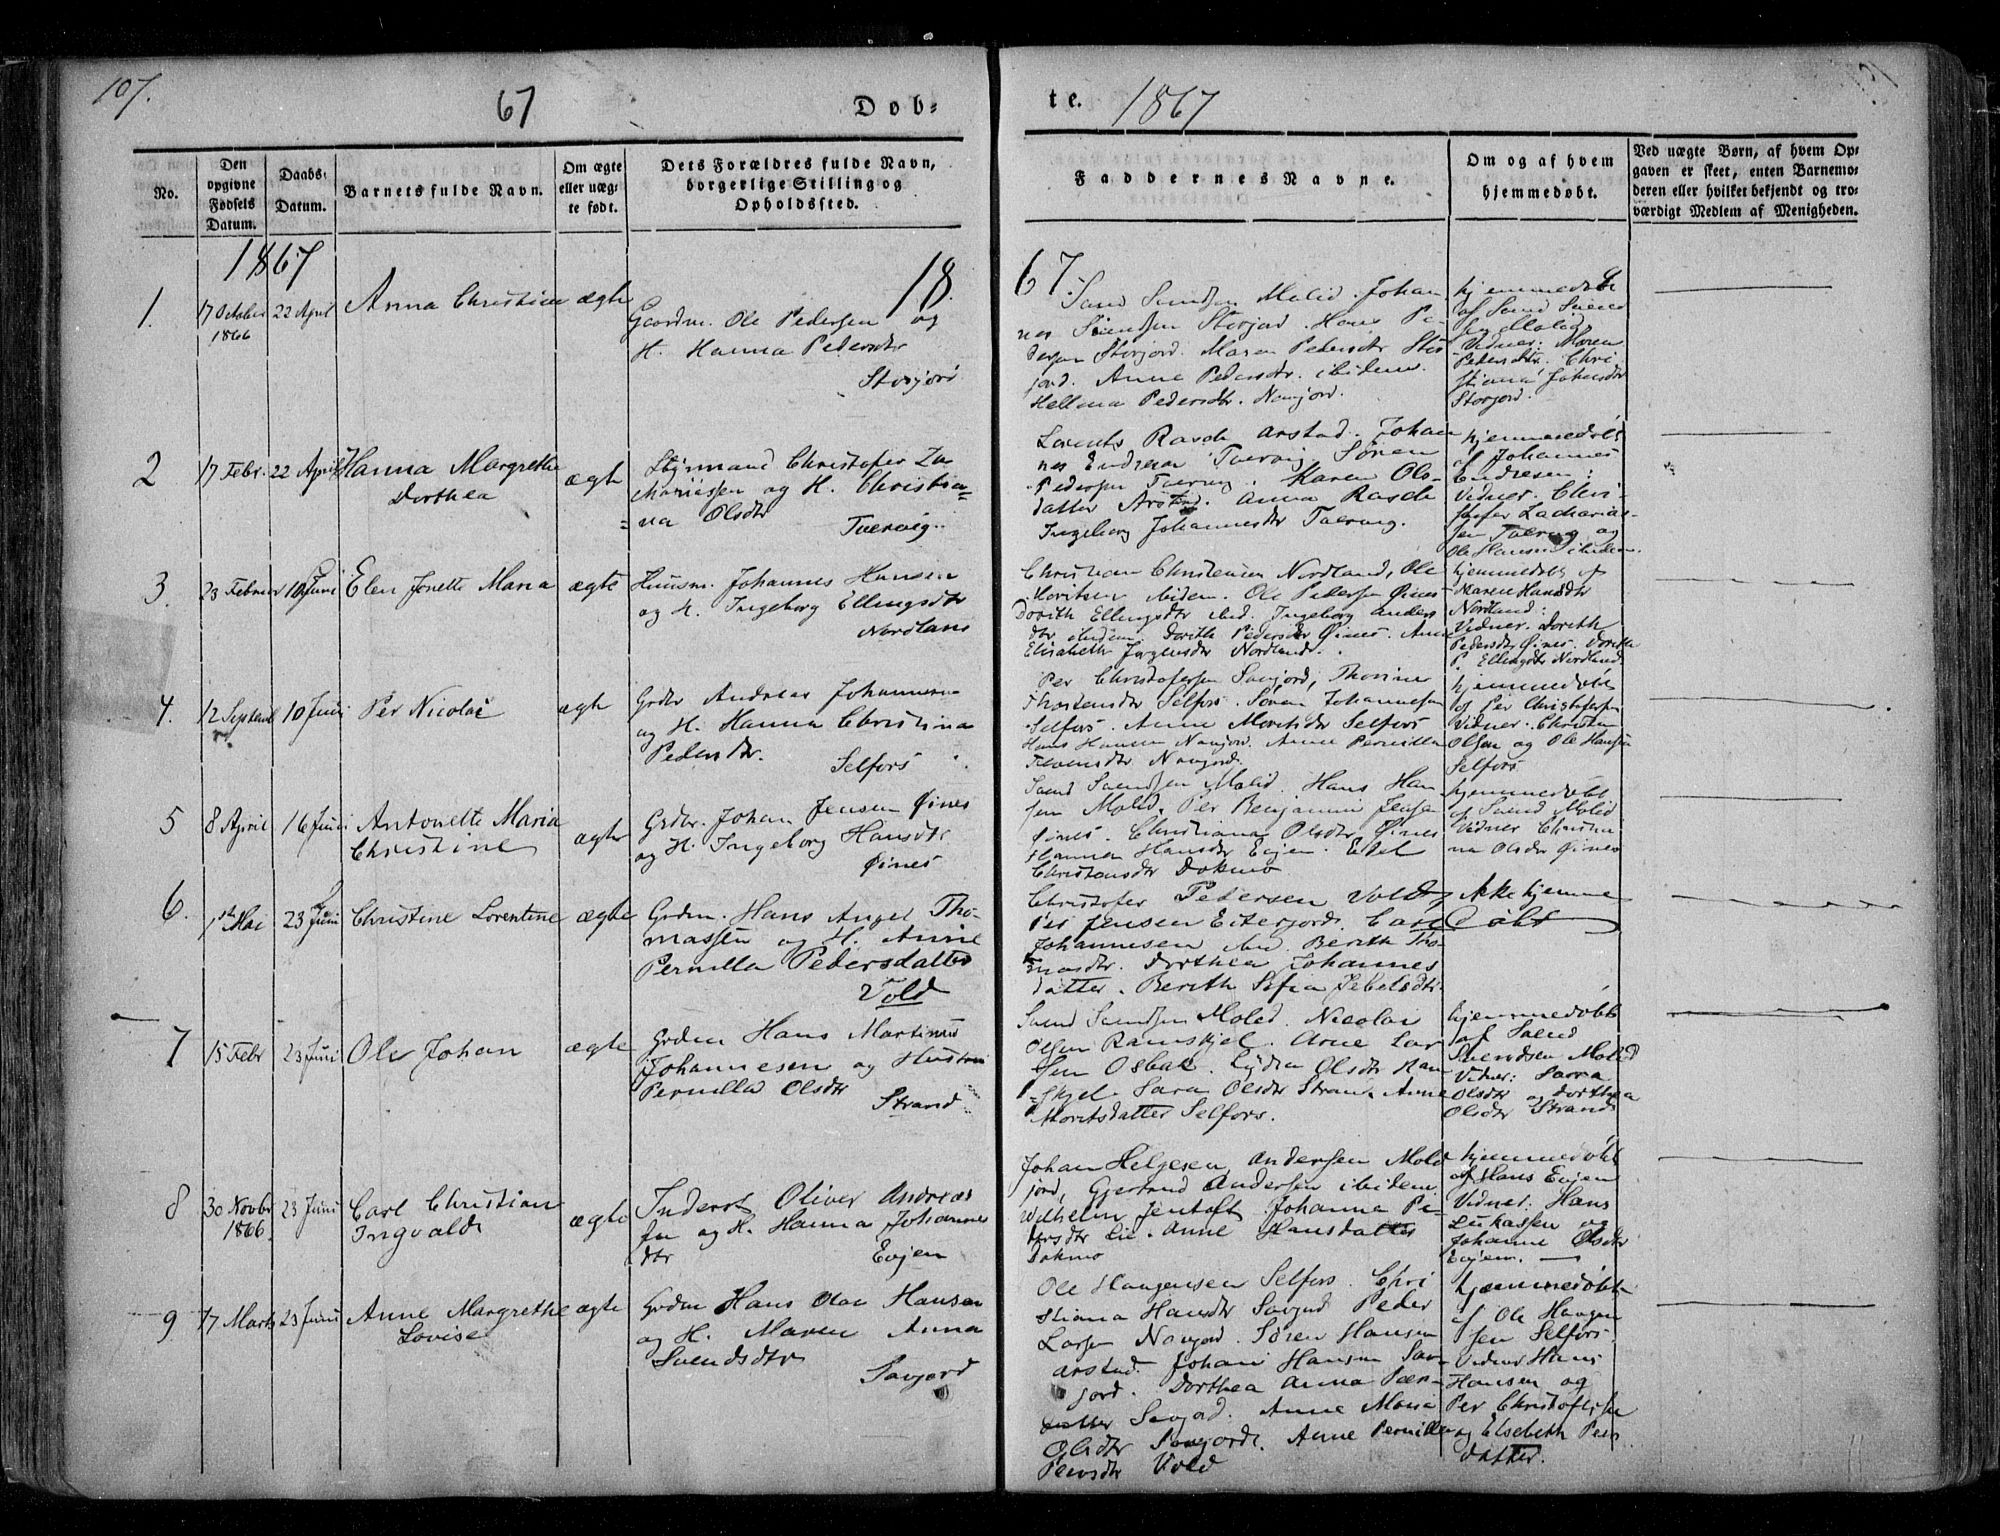 107.
67
Døb-
te.
1867
No.
Den opgivne Fødsels Datum.
Daabs-Datum.
Barnets fulde Navn.
Om ægte eller uæg-te født.
Dets Forældres fulde Navn, borgerlige Stilling og Opholdssted.
Faddernes Navne.
Om og af hvem hjemmedøbt.
Ved uægte Børn, af hvem Op-gaven er skeet, enten Barnemo-deren eller hvilket bekjendt og tro-værdigt Medlem af Menigheden.
1867
18
67.
1.
17 October
1866
22 April
Anna Christine
ægte
Gaardm. Ole Pedersen og
H. Hanna Pedersdtr
Storjord
Svend Svendsen Molid. Johan
nes Svendsen Storjord. Hans Pe-
dersen Storjord. Maren Pedersdtr Stor
jord. Anne Pedersdtr. ibidem.
Hellena Pedersdtr. Navjord.
hjemmedøbt
af Svend Svend
sen Molid
Vidner: Maren
Pedersdtr. Chri
stiana Johansdtr
Storjord.
2
17 Febr.
22 April
Hanna Margrethe
Dorthea
ægte
Styrmand Christofer Za
kariassen og H. Christia-
na Olsdtr
Tvervig.
Lorents Rasch Arstad. Johan
nes Endresen Tvervig. Søren
Pedersen Tvervig. Maren Ols-
datter Arstad. Anna Rasch
Ingeborg Johannesdtr Tvervig.
hjemmedøbt
af Johannes
Endresen:
Vidner. Chri-
stofer Zacharias-
sen Tvervig og
Ole Hansen ibidem.
3.
23 Februar
10 Juni
Elen Jonette Maria
ægte
Huusm. Johannes Hansen
og H. Ingeborg Ellingsdtr
Nordland
Christian Christensen Nordland, Ole
Moritsen ibidem. Ole Pedersen Øines-
Dorith Ellingsdtr ibid. Ingeborg Anders
dtr ibidem. Dorith Pedersdtr Øines. Anne
Elisabeth Jørgensdtr Nordland.
hjemmedøbt af
Maren Hansdtr
Nordland:
Vidner. Dorith
Pedersdtr Øines. Dorith
P. Ellingsdtr Nordland.
4.
12 Septemb
10 Juni
Per Nicolai
ægte
Grdbr Andreas Johannesen
og H. Hanna Christina
Pedersdtr.
Selfors
Per Christofersen Savjord, Thorine
Thostensdtr Selfors. Søren Johannesen
Selfors. Anne Moritsdtr Selfors
Hans Hansen Navjord. Anne Pernilla
Navjord.
hjemmedøbt
af Per Christofersen
Vidner. Christen
Olsen og Ole Hansen
Selfors
5
8 April
16 Juni
Antonette Maria
Christine
ægte
Grdbr. Johan Jensen Øines
og H. Ingeborg Hansdtr
Øines
Svend Svendsen Molid. Hans Han
sen Molid. Per Benjamin Jensen
Øines. Christiana Olsdtr Øines
Hanna Hansdtr Evjen. Edel
Christensdtr Dokmo
hjemmedøbt
af Svend Molid
Vidner Christia
na Olsdtr Øines
6.
1ste Mai
23 Juni
Christine Lorentine
ægte
Grdm. Hans Angel Tho-
massen og H. Anne
Pernilla Pedersdatter
Vold
Christofer Pedersen Vold
Per Jensen Eiterjord. Carl
Johannesen ibid. Berith Tho-
masdtr. Dorthea Johannes
datter. Berith Sofia Jebelsdtr.
Ikke hjemme
døbt
7
15 Febr
23 Juni
Ole Johan
ægte
Grdm Hans Martinus
Johannesen og Hustru
Pernilla Olsdtr
Strand
Svend Svendsen Molid. Nicolai
Olsen Ramskjel. Arne Lar
sen Osbak. Lydia Olsdtr Ram
skjel. Sara Olsdtr Strand. Anne
Moritsdatter Selfors.
hjemmedøbt
af Svend
Svendsen Molid
Vidner: Sarra
Olsdtr og Dorthea
Olsdtr Strand
8
30 Novbr
1866.
23 Juni
Carl Christian
Ingvald
ægte
Inderst Oliver Andreas
sen og H. Hanna Johannes
dtr
Evjen
Johan Helgesen Andersen Mold
jord, Gjertrud Andersen ibidem.
Wilhelm Jentoft Johanna Pe-
dersdtr Lie. Anne Hansdatter
Dokmo
hjemmedøbt
af Hans Evjen
Vidner: Hans
Lukassen og
Johanne Olsdtr
Evjen.
9.
17 Marts
23 Juni
Anne Margrethe
Lovise
ægte
Grdm Hans Olai Hansen
og H. Maren Anna
Svendsdtr
Savjord
Ole Haagensen Selfors. Chri
stiana Hansdtr Savjord Peder
Larsen Navjord. Søren Hansen
Arstad. Johan Hansen Sav-
jord. Dorthea Anna Pær-
datter Savjord. Anne Maria
Olsdtr Savjord. Anne Pernilla
Peersdtr Vold
hjemmedøbt
af Ole Haagen
sen Selfors.
Vidner Hans
Hansen og
Per Christofersen
og Elsebeth Peers
datter.